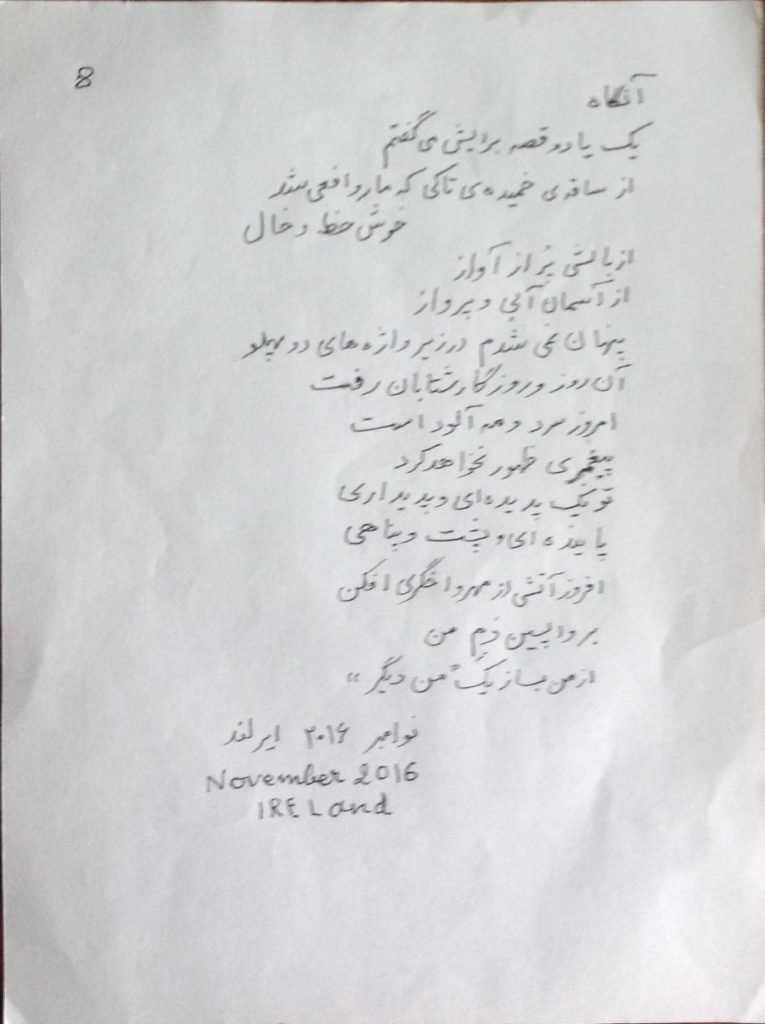 8
آنگاه
یک یا دو قصه برایش می گفتم
از ساقه ی خمیده ی تاکی که مار وافعی شد
خوش خط و خال
از بالشی پُر از آواز
از آسمان آبی و پرواز
پنهان نمی شدم در زیر واژه های دو پهلو
آن روز و روزگار شتابان رفت
امروز سرد و مه آلود است
پیغمبری ظهور نخواهد کرد
تو یک پدیده ای و پدیداری
پاینده ای و پشت و پناهی
افروز آتشی از مهر و اخگری افکن
بر واپسین دَمِ من
از من بساز یک "من دیگر"
نوامبر ۲۰۱۶ ایرلند
November 2016
IRELand